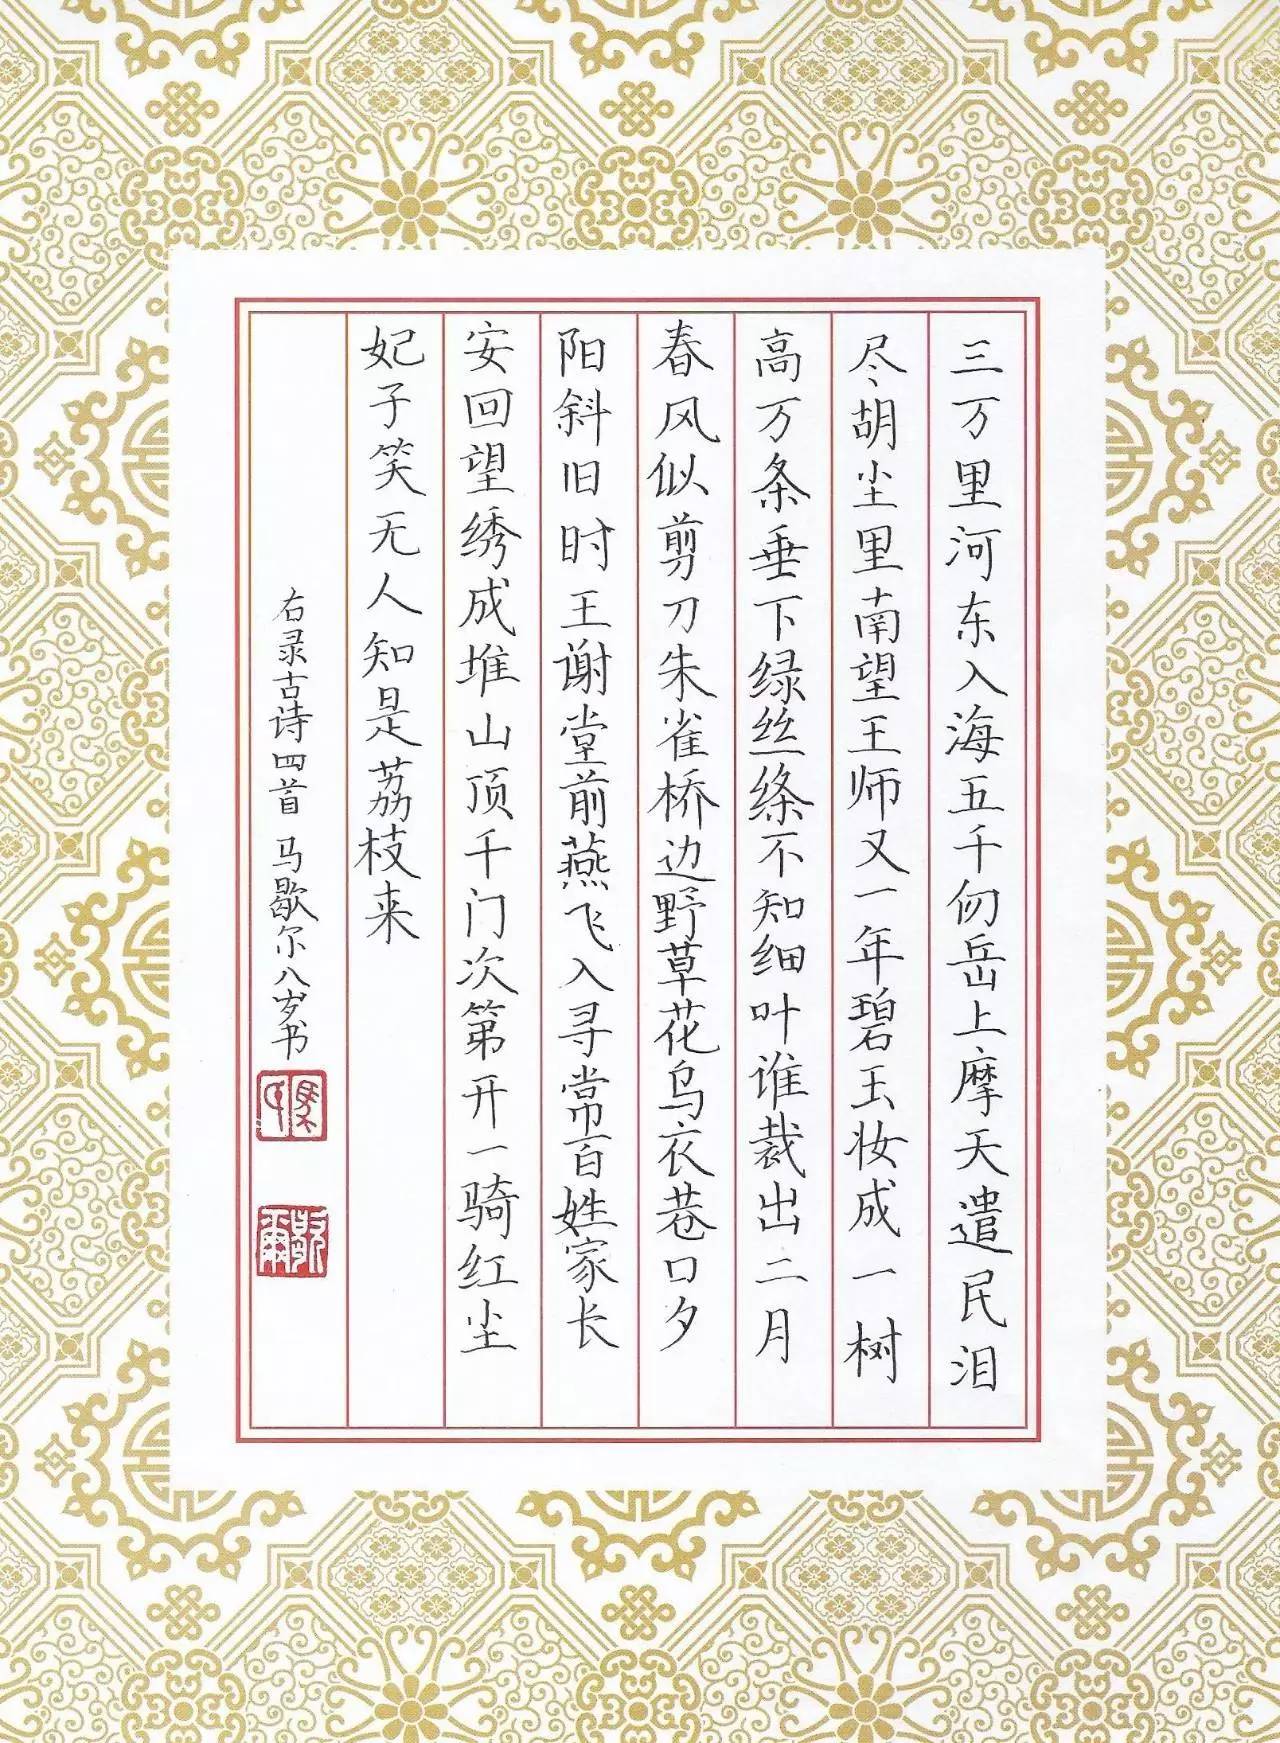 三万里河东入海五千仞岳上摩天遣民泪
尽胡尘里南望王师又一年碧玉妆成一树
高万条垂下绿丝绦不知细叶谁裁出二月
春风似剪刀朱雀桥边野草花乌衣巷口夕
阳斜旧时王谢堂前燕飞入寻常百姓家长
安回望绣成堆山顶千门次第开一骑红尘
妃子笑无人知是荔枝来
右录古诗四首 马歇尔八岁书